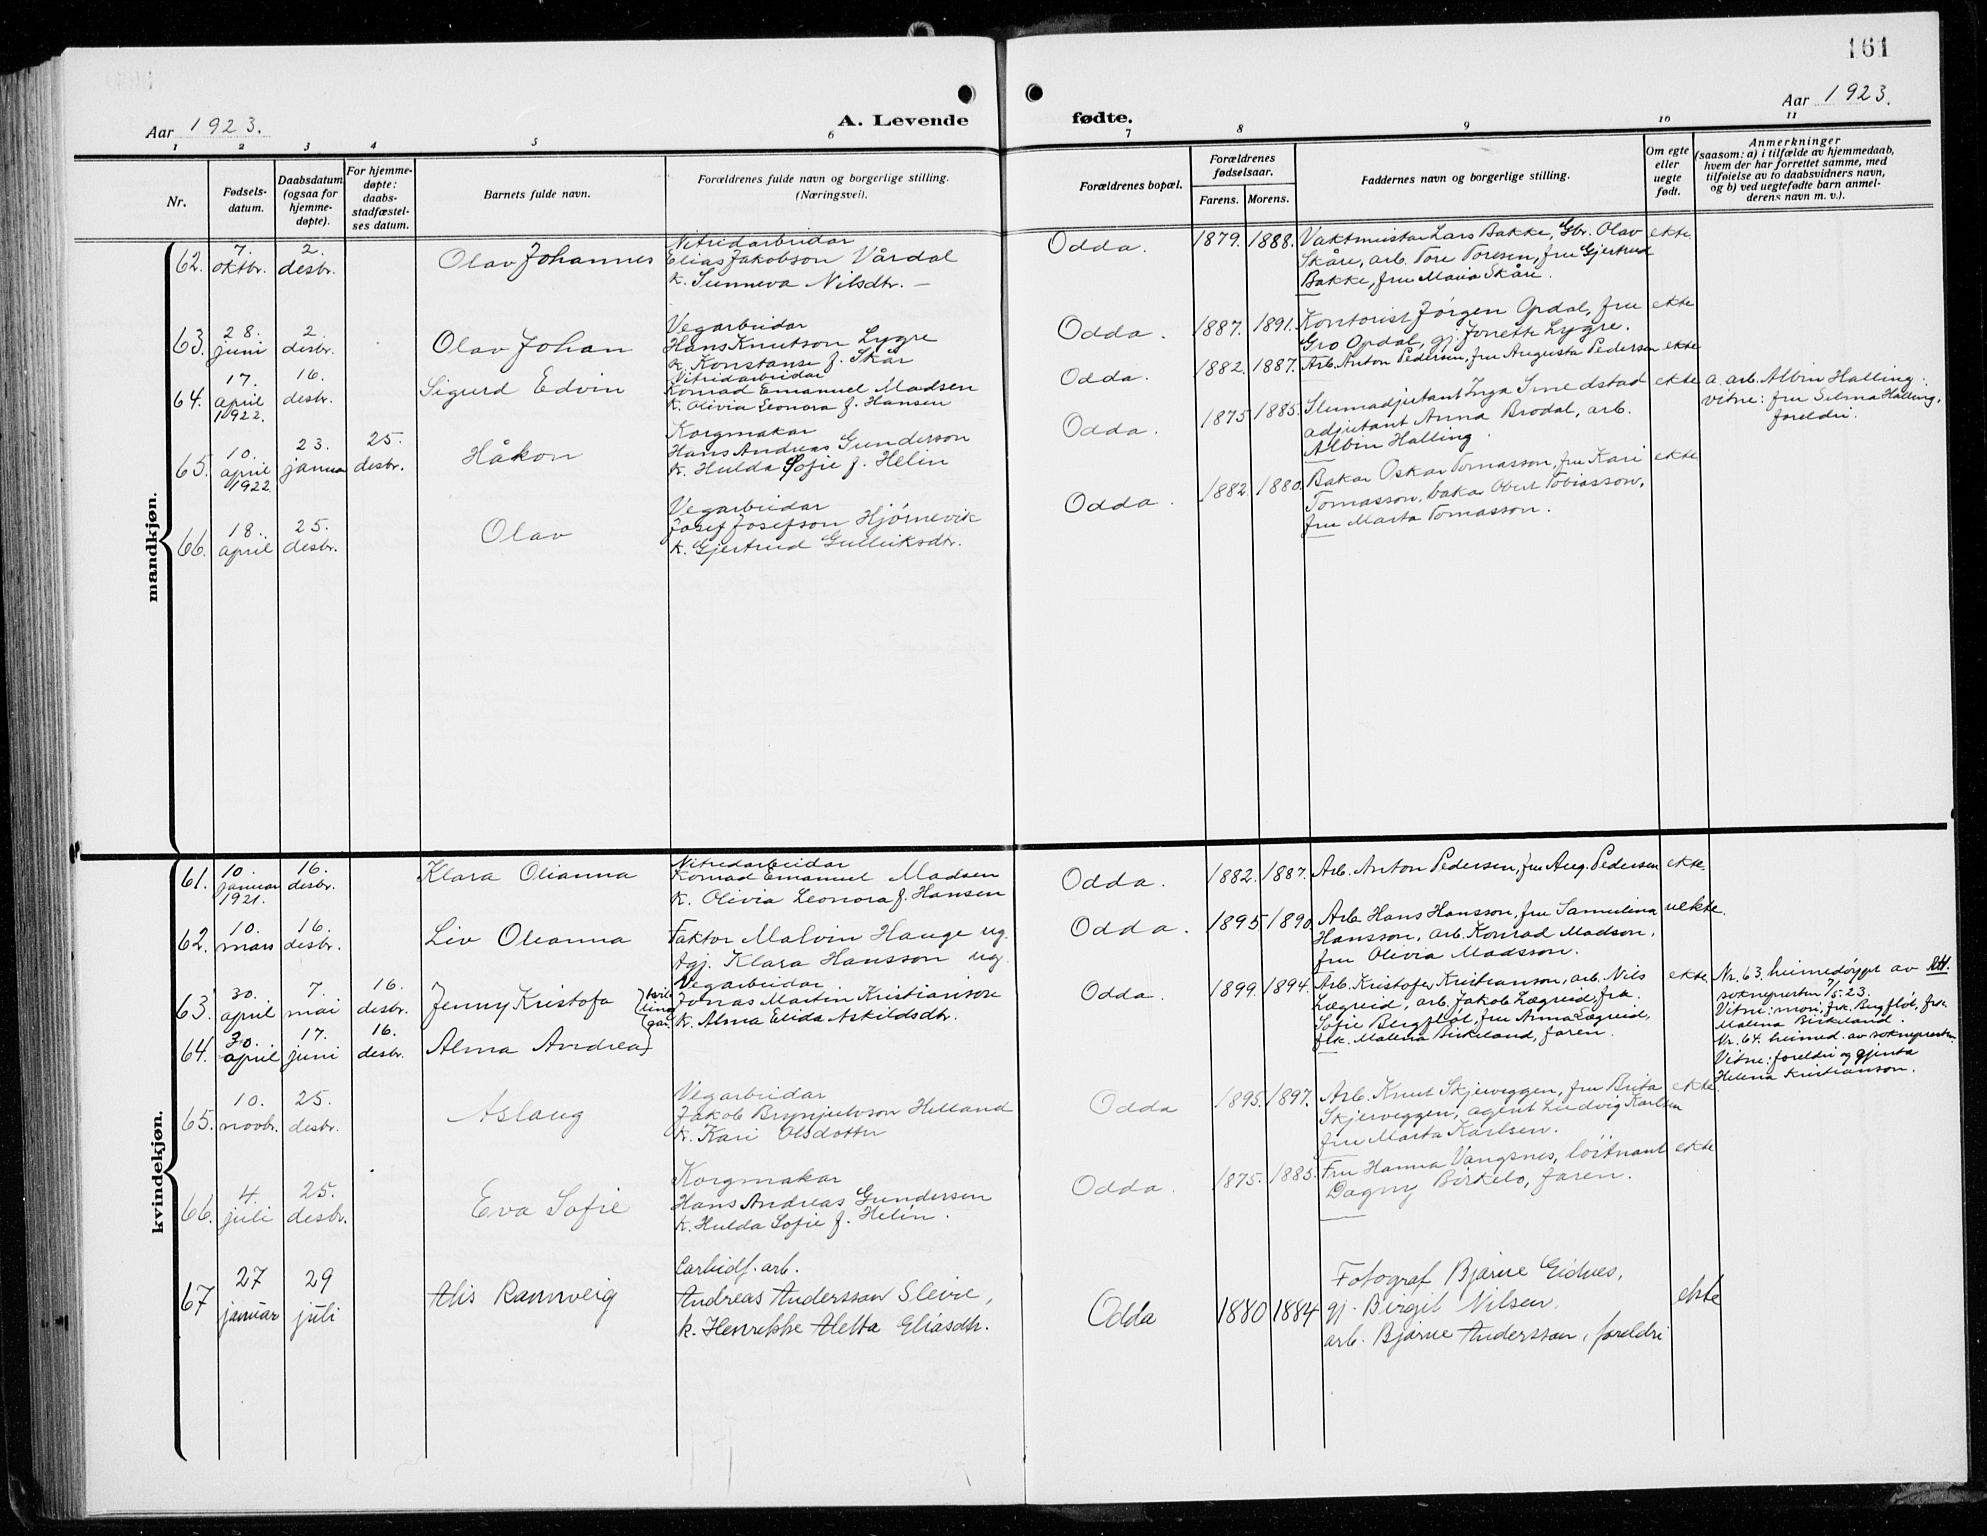 161
Aar 1923.
A. Levende
fødte.
Aar 1923.
1 2 3 4 5 6 7 8 9 10 11
Nr.
Fødsels-
datum.
Daabsdatum
(ogsaa for
hjemme-
døpte).
For hjemme-
døpte:
daabs-
stadfæstel-
ses datum.
Barnets fulde navn.
Forældrenes fulde navn og borgerlige stilling.
(Næringsvei).
Forældrenes bopæl.
Forældrenes
fødselsaar.
Farens. Morens.
Faddernes navn og borgerlige stilling.
Om egte
eller
uegte
født.
Anmerkninger
(saasom: a) i tilfælde av hjemmedaab,
hvem der har forrettet samme, med
tilføielse av to daabsvidners navn,
og b) ved uegtefødte barn anmel-
derens navn m. v.).
mandkjøn.
62.
7.
oktbr.
2.
desbr.
Olav Johannes
Nitridarbeidar
Elias Jakobson Vårdal
k. Sunneva Nilsdtr. –
Odda.
1879. 1888.
Vaktmeistar Lars Bakke, Gbr. Olav
Skåre, arb. Tore Toresen, fru Gjertrud
Bakke, fru Maria Skåre.
ekte
63.
28.
juni
2.
desbr.
Olav Johan
Vegarbeidar
Hans Knutson Lygre
k. Konstanse f. Skår
Odda.
1887. 1891.
Kontorist Jørgen Opdal, fru
Gro Opdal, gj. Jonette Lygre.
ekte
64.
17.
april
1922.
16.
desbr.
Sigurd Edvin
Nitridarbeidar
Konrad Emanuel Madsen
k. Olivia Leonora f. Hansen
Odda.
1882. 1887.
Arb. Anton Pedersen, fru Augusta Pedersen
ekte
65.
10.
april
1922.
23.
januar
25.
desbr.
Håkon
Korgmakar
Hans Andreas Gunderson
k. Hulda Sofie f. Helin
Odda.
1875 1885.
Slumadjutant Inga Smedstad
adjutant Anna Brodal, arb.
Albin Halling.
ekte
a. arb. Albin Halling.
vitne: fru Selma Halling,
foreldri.
66.
18.
april
25.
desbr.
Olav
Vegarbeidar
Josef Josefson Hjørnevik
k. Gjertrud Gulleiksdtr.
Odda.
1882. 1880.
Bakar Oskar Tomasson, fru Kari
Tomasson, bakar Obert Tobiasson,
fru Marta Tomasson.
ekte
kvindekjøn.
61.
10.
januar
1921.
16.
desbr.
Klara Olianna
Nitridarbeidar
Konrad Emanuel Madsen
k. Olivia Leonora f. Hansen
Odda.
1882. 1887.
Arb. Anton Pedersen, fru Aug. Pedersen
ekte.
62.
10.
mars
16.
desbr.
Liv Oleanna
Faktor Malvin Hauge ug.
Agj. Klara Hansson ug.
Odda.
1895 1890
Arb. Hans Hansson, fru Samulina
Hansson, arb. Konrad Madson,
fru Olivia Madsson.
uekte.
63.
30.
april
7.
mai
16.
desbr.
Jenny Kristofa
Vegarbeidar
Jonas Martin Kristianson
k. Alma Elida Askildsdtr.
Odda.
1899. 1894.
Arb. Kristofer Kristianson, arb. Nils
Lægreid, arb. Jakob Lægreid, frk.
Sofie Bergfløt, fru Anna Lægreid,
frk. Malena Birkeland, faren.
ekte
Nr. 63. heimedøypt av
soknepresten 7/5.23.
Vitne: mori, frk. Bergfløt, frk.
Malena Birkeland.
Nr. 64. heimed. av soknepresten
Vitne: foreldri og gjenta
Helena Kristianson.
64.
30.
april
17.
juni
16.
desbr.
Alma Andrea
65.
10.
novbr.
25.
desbr.
Aslaug
Vegarbeidar
Jakob Brynjulvson Helland
k. Kari Olsdotter
Odda
1895. 1897.
Arb. Knut Skjerveggen, fru Brita
Skjerveggen, agent Ludvig Karlsen
fru Marta Karlsen.
ekte
66.
4.
juli
25.
desbr.
Eva Sofie
Korgmakar
Hans Andreas Gundersen
k. Hulda Sofie f. Helin.
Odda.
1875. 1885.
Fru Hanna Vangsnes, løitnant
Dagny Birkelo, faren.
ekte
67
27
januar
29
juli
Alis Rannveig
Carbidf. arb.
Andreas Anderssan Sleire,
k. Henrikke Aletta Eliasdtr.
Odda
1880 1884
Fotograf Bjarne Eidnes,
gj. Birgit Nilsen,
arb. Bjarne Anderssan, foreldri
ekte